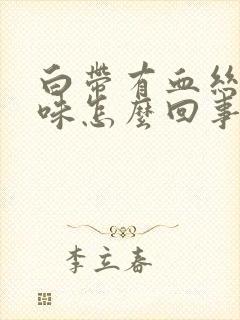 白帶有血絲
味怎麼回事
李立春